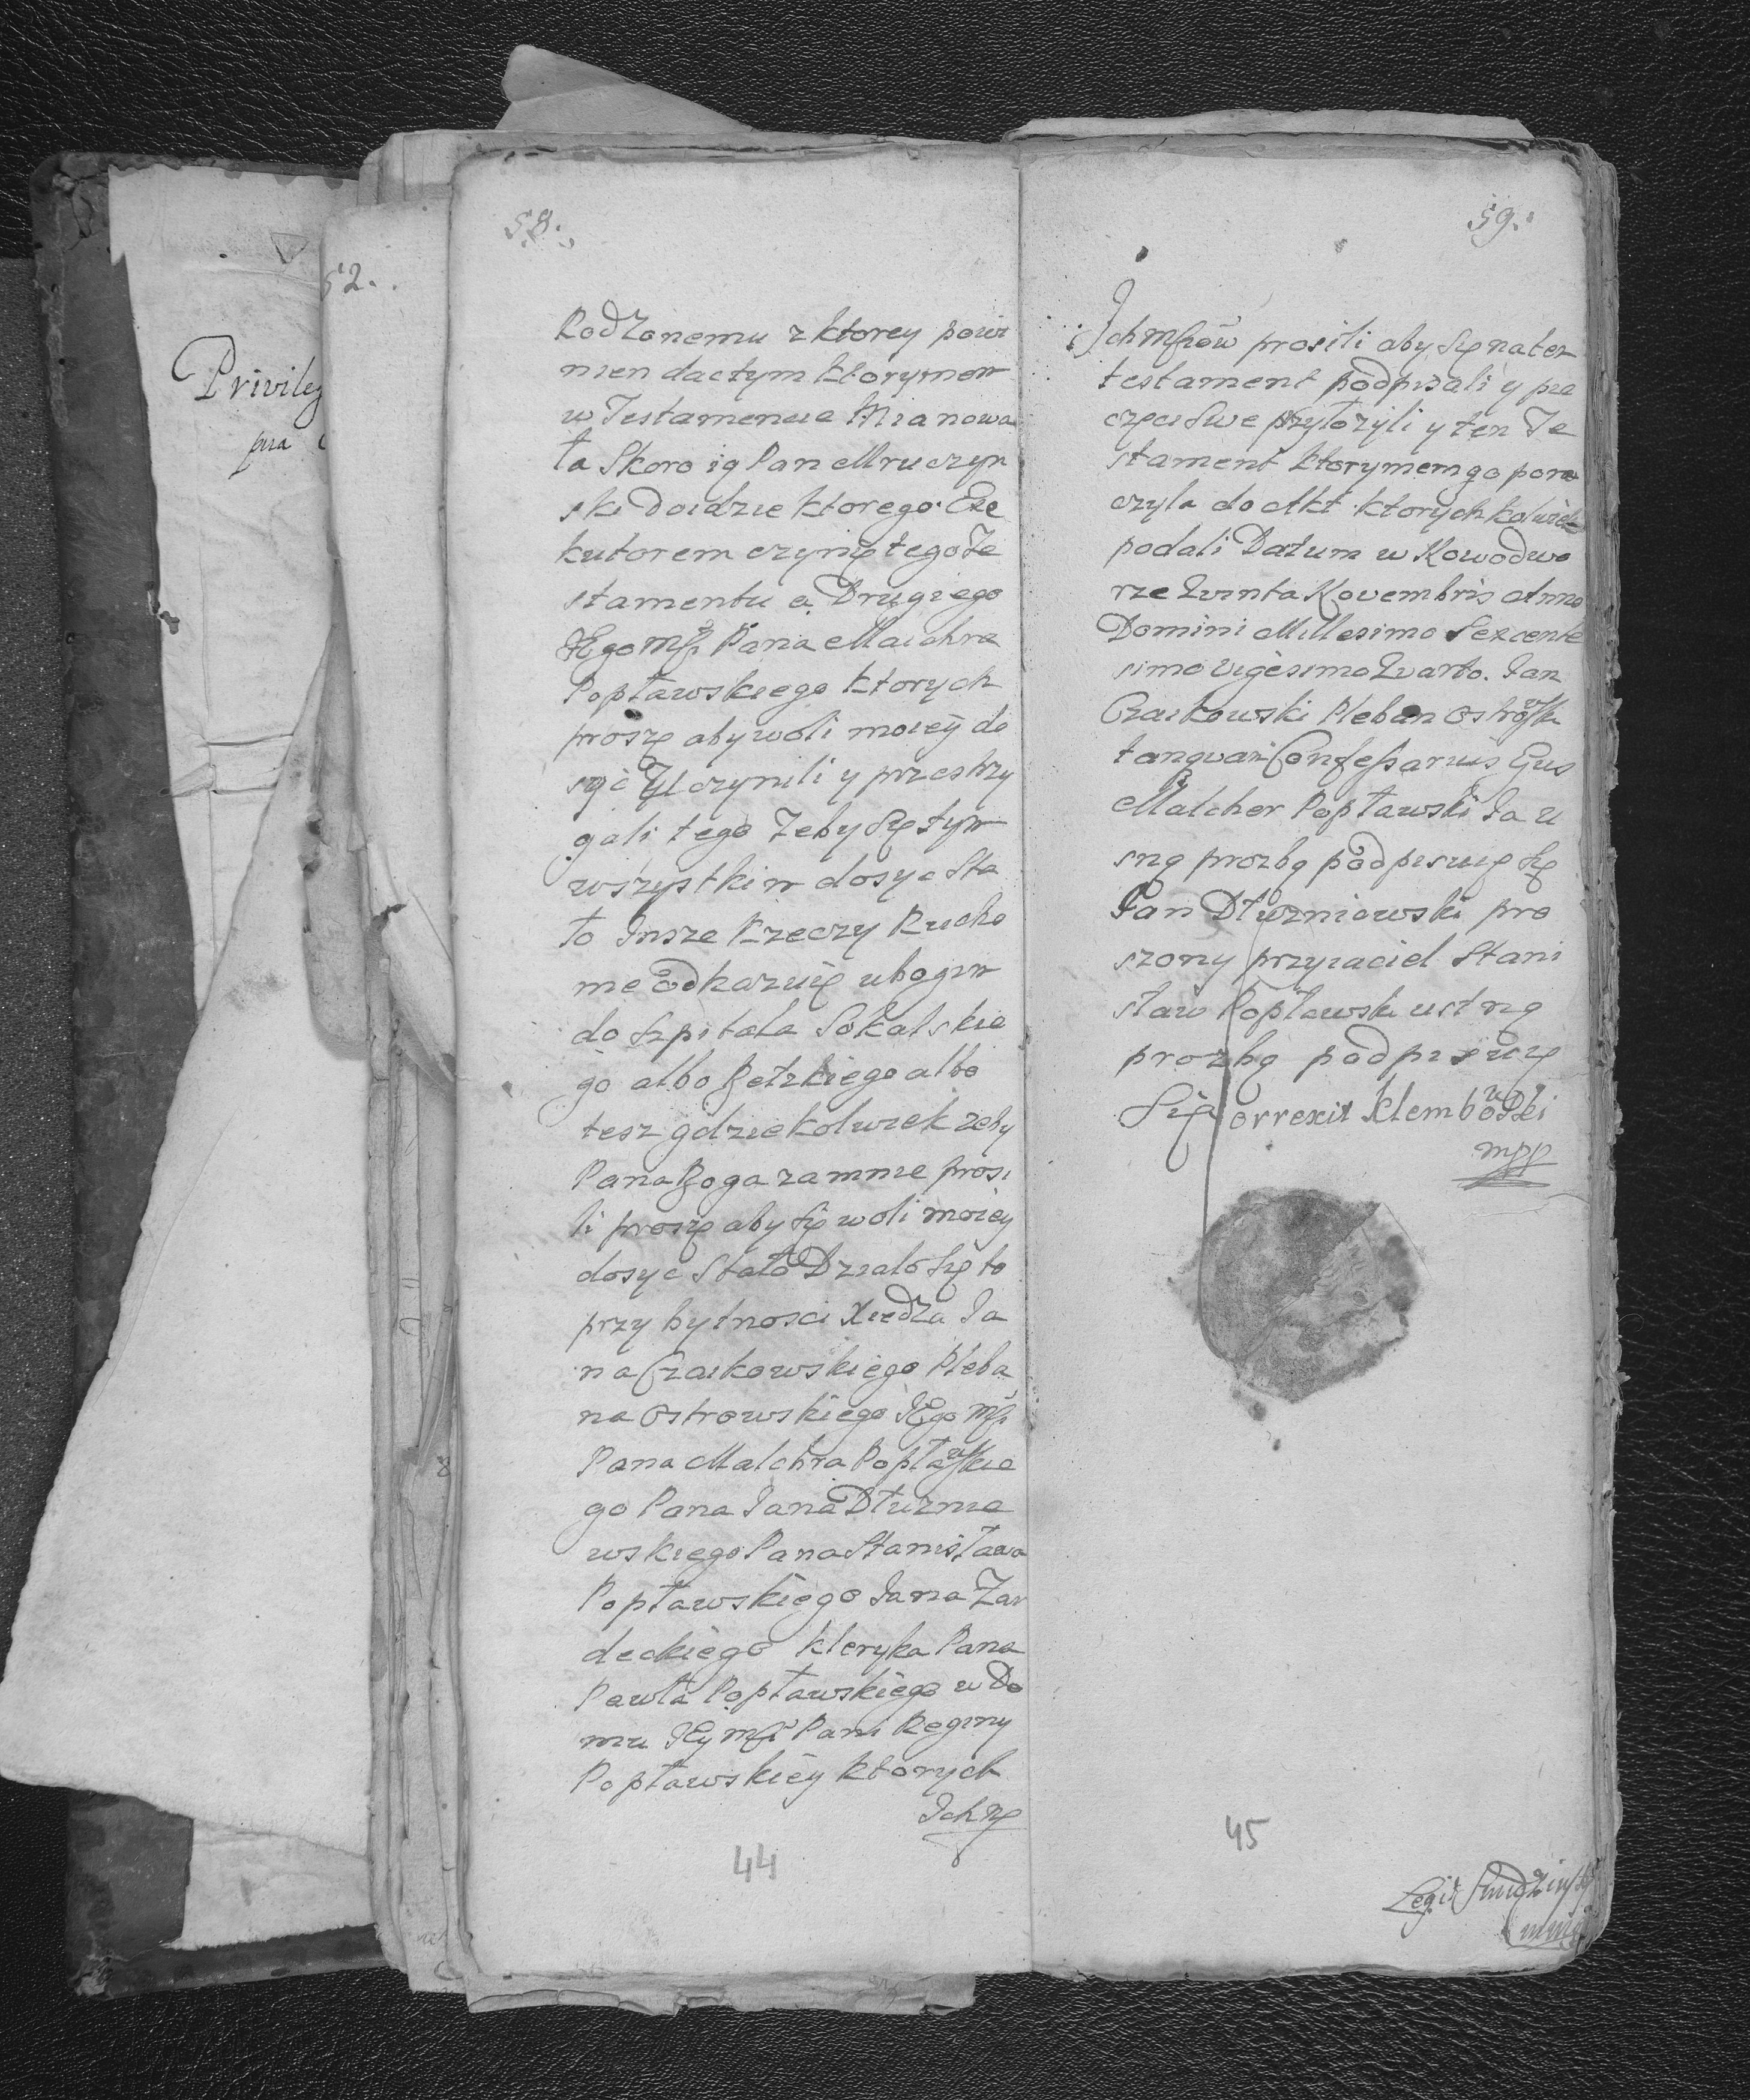 52.
Privileg
pra
58.
Rodzonemu z ktorey powi
nien dac tym ktorymem
w Testamencie Mianowa
ła Skoro ią Pan Mruczyn
ski Doidzie ktorego Exe
kutorem czynię tego Te
stamentu a Drugiego
JEgo Mści Pana Malchra
Popławskiego ktorych
proszę aby woli moiey do
syć Uczynili y przestrzy
gali tego Zeby Się tym
wszystkim dosyc Sta
ło Insze Rzeczy Rucho
me odkazuię ubogim
do Szpitala Sokalskie
go albo Bełzkiego albo
tesz gdzie kolwiek zeby
Pana Boga za mnie prosi
li proszę aby Się woli moiey
dosyc Stało Działo Się to
przy bytnosci Xiedza Ja
na Czaikowskiego Pleba
na Ostrowskiego JEgo Mści
Pana Malchra Popławskie
go Pana Jana Dłuznie
wskiego Pana Stanisława
Popławskiego Jana Zar
deckiego kleryka Pana
Pawła Popławskiego w Do
mu JEy Mści Pani Reginy
Popławskiey ktorych
Ich
44
59.
Ich Mściow prosili aby Się na ten
testament podpisali y pie
częci Swe przyłozyli y ten Te
stament ktorymem go poru
czyla do Akt ktorychkolwiek
podali Datum w Nowodwo
rze Qvinta Novembris Anno
Domini Millesimo Sexcente
simo vigesimo Qvarto. Jan
Czaikowski Pleban Ostrowski
tanqvam Confessarius Eius
Malcher Popławski Ja U
sną prozbą podpisuię Się
Jan Dłuzniowski pro
szony przyiaciel Stani
sław Popławski ustną
prozbą podpisuię
Się Correxit Klembowski
mpp
45
Legit